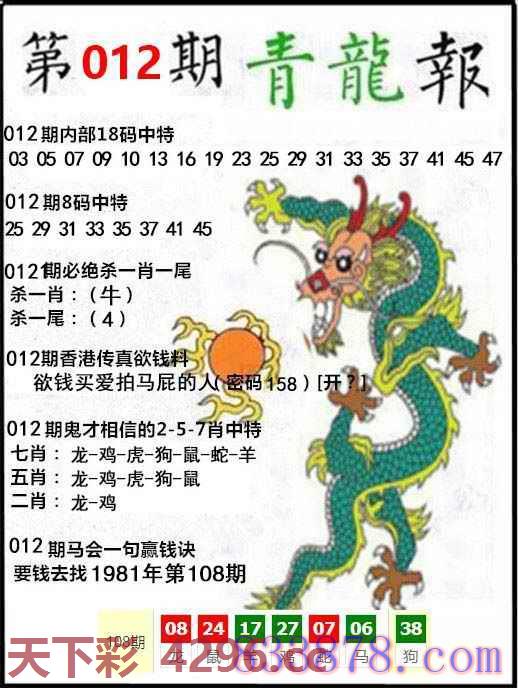 第012期青龍報
012期内部18码中特
03 05 07 09 10 13 16 19 23 25 29 31 33 35 37 41 45 47
012期8码中特
25 29 31 33 35 37 41 45
012期必绝杀一肖一尾
杀一肖：（牛）
杀一尾：（4）
012期香港传真欲钱料
欲钱买爱拍马屁的人(密码158)[开?]
012期鬼才相信的2-5-7肖中特
七肖：龙-鸡-虎-狗-鼠-蛇-羊
五肖：龙-鸡-虎-狗-鼠
二肖：龙-鸡
012期马会一句赢钱诀
要钱去找1981年第108期
108期 08 24 17 27 07 06 38
龙 鼠 羊 鸡 蛇 马 狗
天下彩